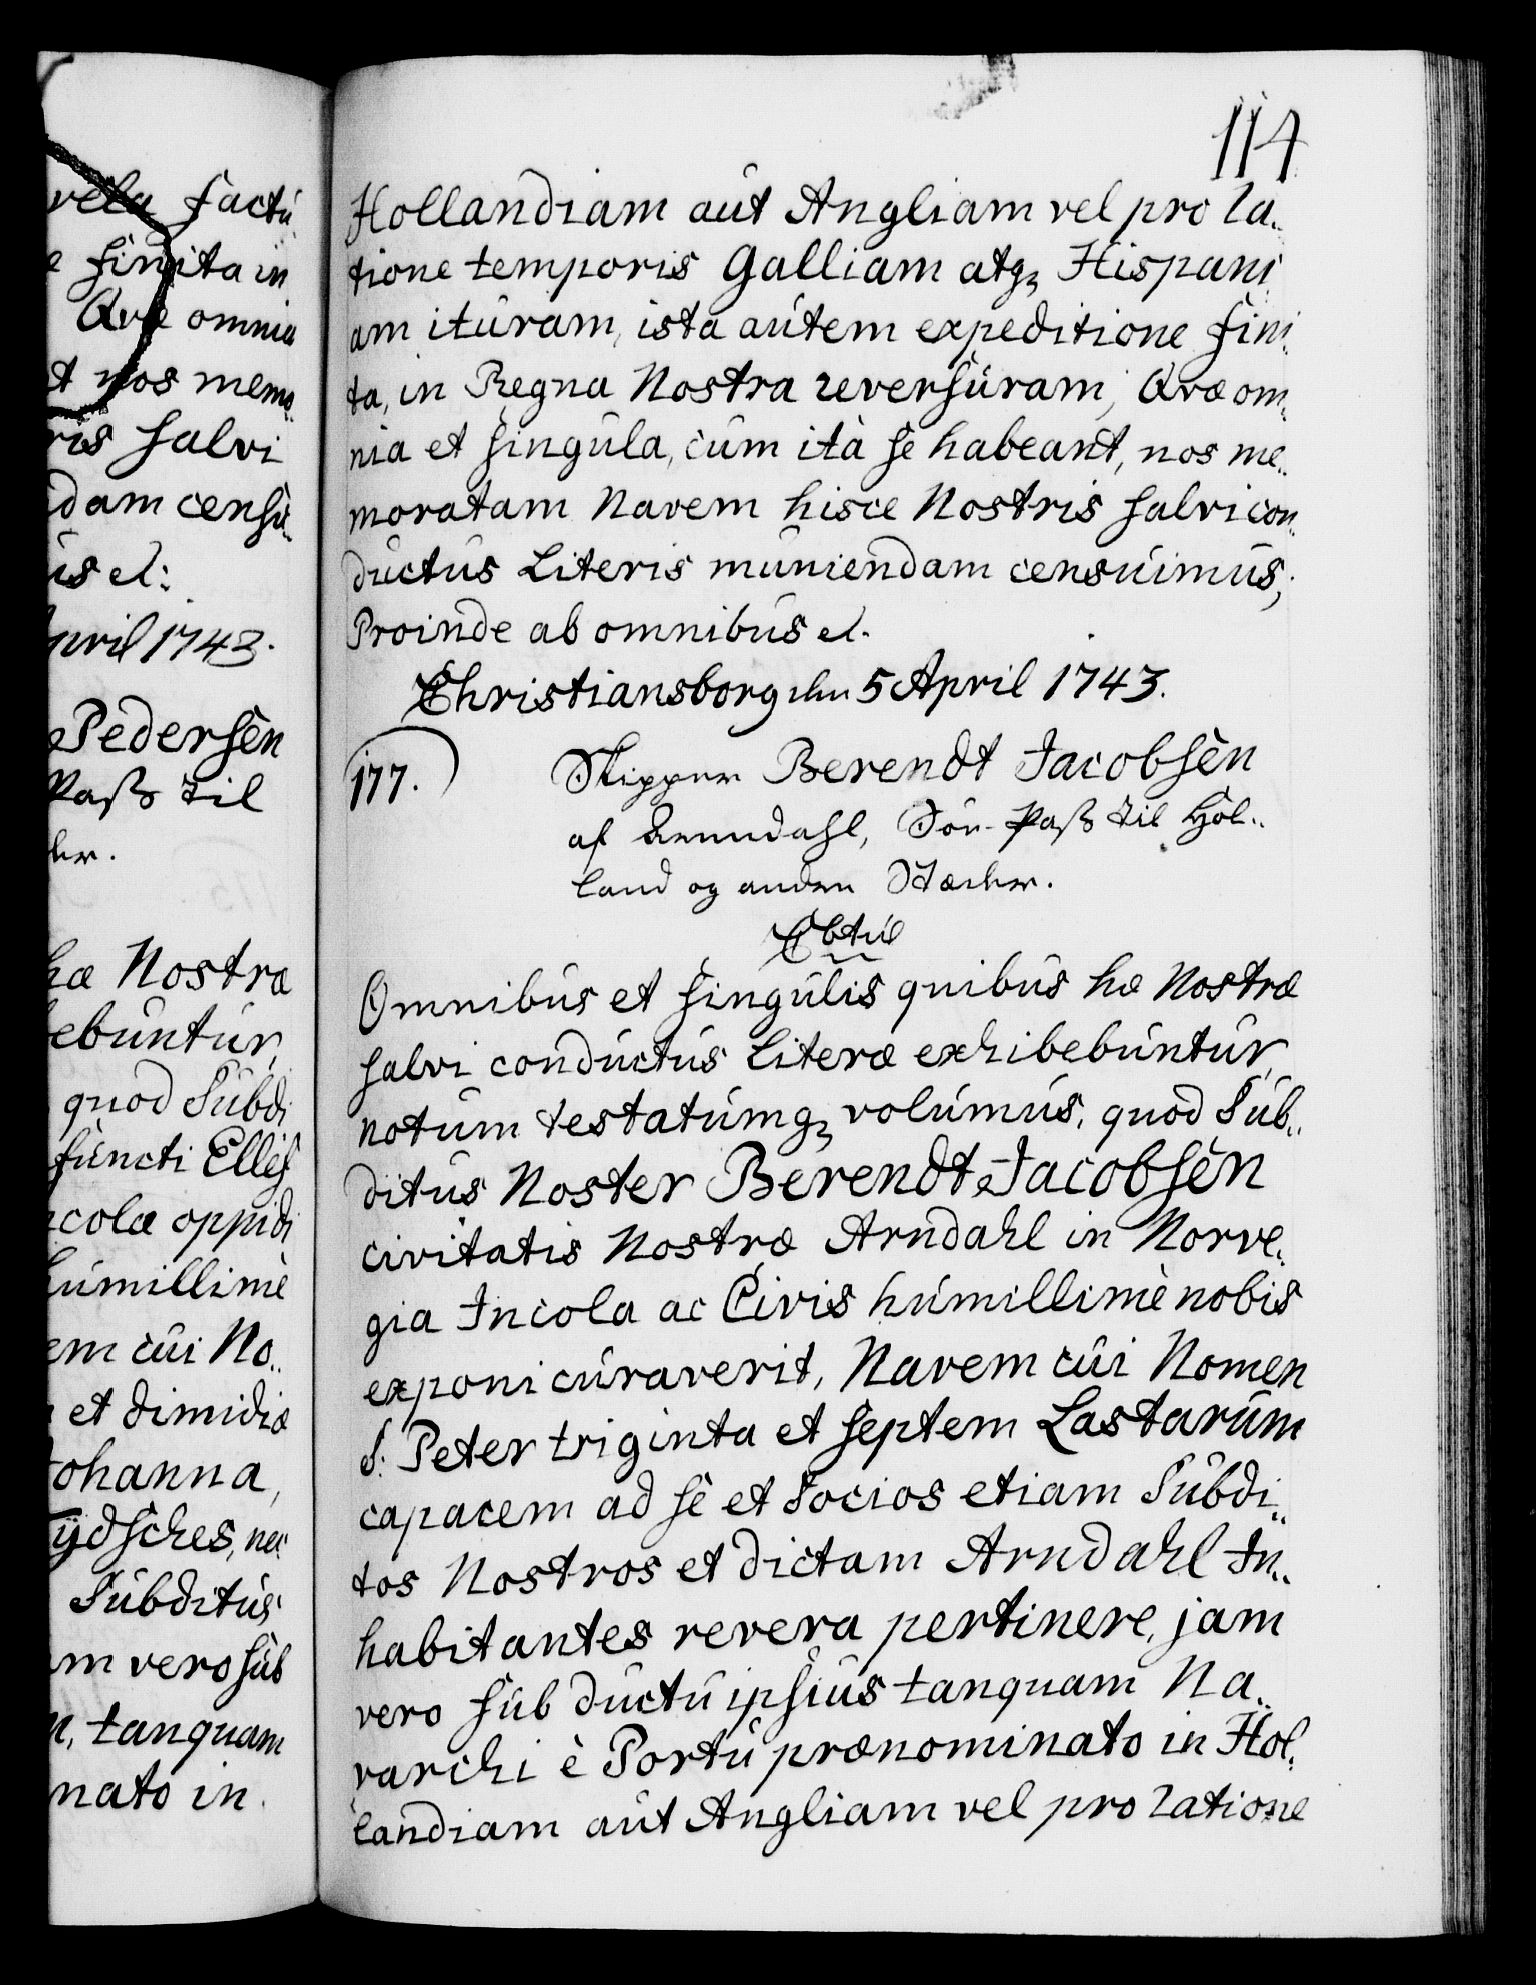 vela factú
e finita in
Qvæ omnia
t nos memo..
ris salvi
dam censú..
ús el:
April 1743.
Pedersèn
Paß til
hæ Nostræ
ebúntúr,
quod Súbdi
fúncti Elleſ
ncolæ oppidi
húmillimè
em cúi No..
et dimidiæ
Johanna,
ÿdsches, nec
Súbditús
m vero súb
n, tanquam
nato in
114
Hollandiam aút Angliam vel pro ra..
tione temporis Galliam atqz Hispani
am itúram, ista aútem expeditione fini..
ta, in Regna Nostra reversúram, Qvæ om..
nia et singúla, cúm ità se habeant, nos me..
moratam Navem hisce Nostris salvi con..
dúctús Literis múniendam censúimús;
Proinde ab omnibús el.
Christiansborg den 5 April 1743.
177.
Skipper Berendt Jacobsèn
af Arendahl, Söe-Paß til Hol..
land og andre Stæder.
Omnibús et singúlis quibús hæ Nostræ
salvi condúctús Literæ exhibebúntúr,
notúm testatúmqz volúmús, quod Súb..
ditús Noster Berendt Jacobsèn
civitatis Nostræ Arndahl in Norve..
gia Incola ac Civis húmillimè nobis
exponi cúraverit, Navem cúi Nomen
S: Peter triginta et septem Lastarúm
capacem ad sè et Socios etiam Súbdi..
tos Nostros et dictam Arndahl In..
habitantes revera pertinere, jam
vero súb dúctú ipsiús tanquam Na..
varchi è Portú prænominato in Hol..
landiam aút Angliam vel pro ratione